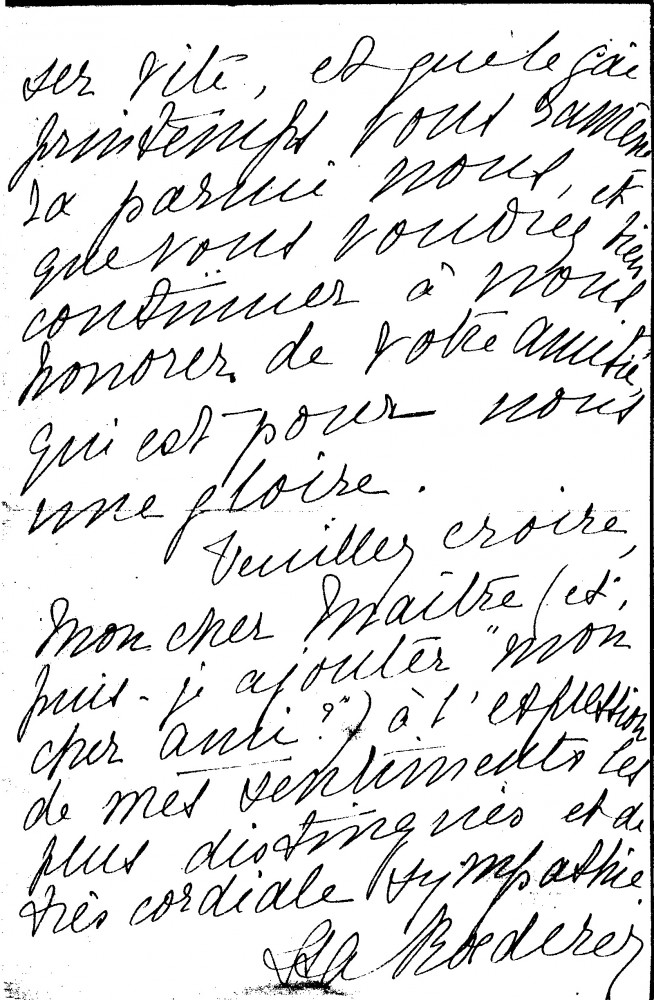 ser vite, et que le gai
printemps vous ramène-
ra parmi nous, et
que vous voudrez bien
continuer à nous
honorer de votre amitié,
qui est pour nous
une gloire.
Veuillez croire,
mon cher Maître (et,
puis-je ajouter "mon
cher ami?") à l'expression
de mes sentiments les
plus distingués et de
très cordiale sympathie
Roederer